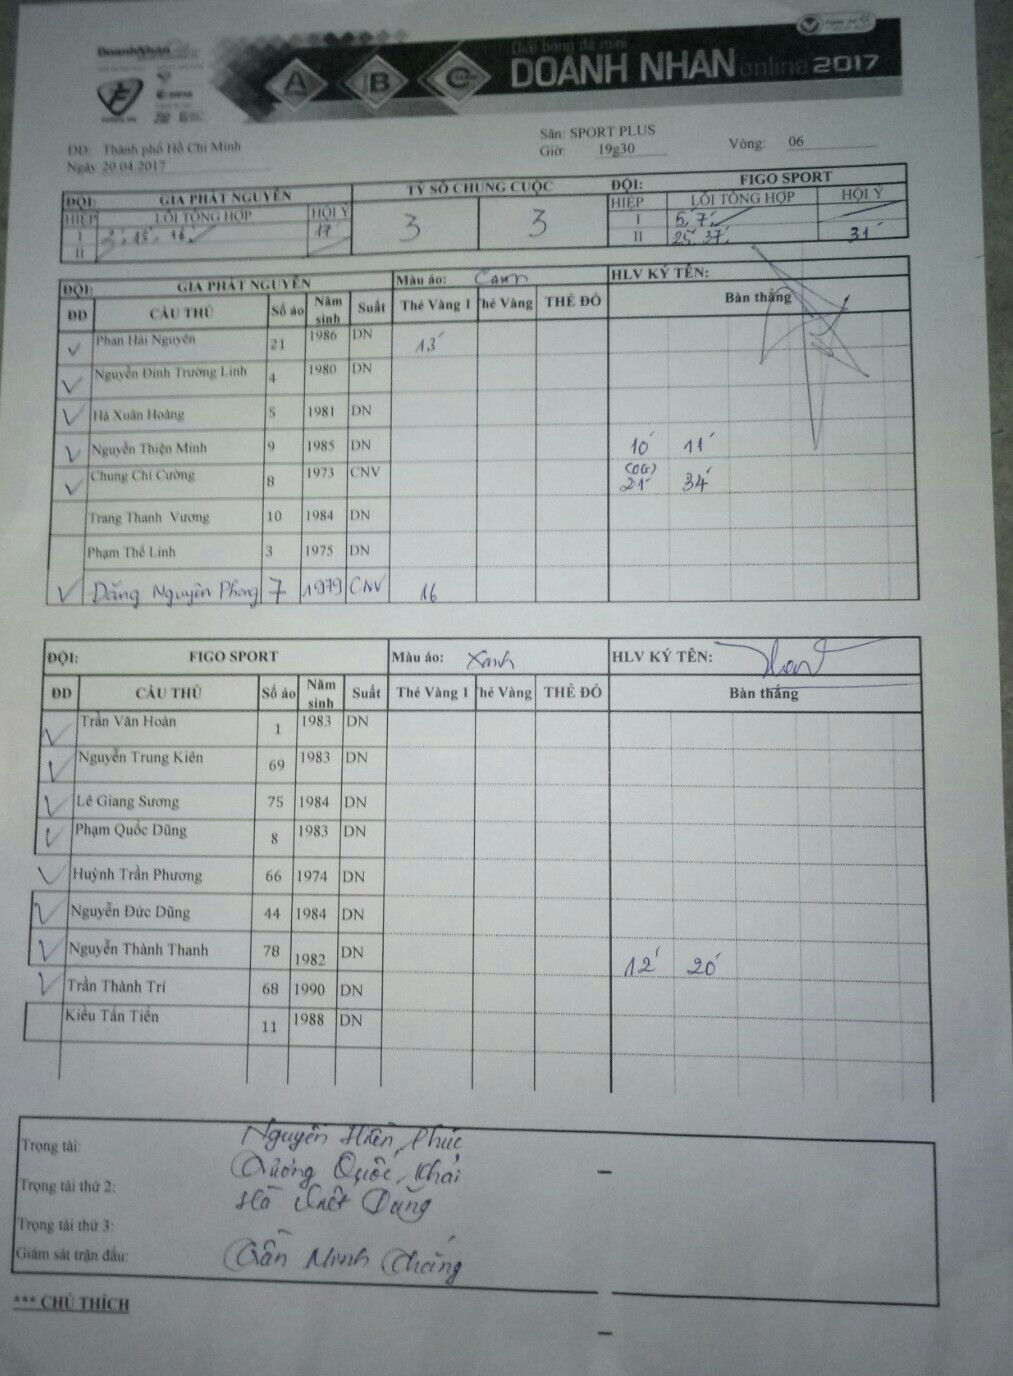 DoanhNhân
A B C
Giải bóng đá mini
DOANH NHAN online 2017
ĐĐ: Thành phố Hồ Chí Minh
Sân: SPORT PLUS
Ngày 20.04.2017
Giờ: 19g30
Vòng: 06
ĐỘI: GIA PHÁT NGUYÊN
TỶ SỐ CHUNG CUỘC
ĐỘI: FIGO SPORT
HIỆP LỖI TỔNG HỢP HỘI Ý
3 3
HIỆP LỖI TỔNG HỢP HỘI Ý
I 2' 15' 16' 17'
I 5' 7'
II
II 25' 37' 31'
ĐỘI: GIA PHÁT NGUYÊN Màu áo: Cam HLV KÝ TÊN:
ĐD CẦU THỦ Số áo Năm sinh Suất Thẻ Vàng 1 Thẻ Vàng THẺ ĐỎ Bàn thắng
Phan Hải Nguyên 21 1986 DN 13'
Nguyễn Đình Trường Linh 4 1980 DN
Hà Xuân Hoàng 5 1981 DN
Nguyễn Thiện Minh 9 1985 DN 10' 11'
Chung Chí Cường 8 1973 CNV (OG) 21' 34'
Trang Thanh Vương 10 1984 DN
Phạm Thế Linh 3 1975 DN
Đặng Nguyên Phong 7 1979 CNV 16
ĐỘI: FIGO SPORT Màu áo: Xanh HLV KÝ TÊN:
ĐD CẦU THỦ Số áo Năm sinh Suất Thẻ Vàng 1 Thẻ Vàng THẺ ĐỎ Bàn thắng
Trần Văn Hoàn 1 1983 DN
Nguyễn Trung Kiên 69 1983 DN
Lê Giang Sương 75 1984 DN
Phạm Quốc Dũng 8 1983 DN
Huỳnh Trần Phương 66 1974 DN
Nguyễn Đức Dũng 44 1984 DN
Nguyễn Thành Thanh 78 1982 DN 12' 20'
Trần Thành Trí 68 1990 DN
Kiều Tấn Tiền 11 1988 DN
Trọng tài: Nguyễn Hiền Phúc
Trọng tài thứ 2: Trương Quốc Khải
Trọng tài thứ 3: Hà Việt Dũng
Giám sát trận đấu: Trần Minh Thắng
*** CHÚ THÍCH